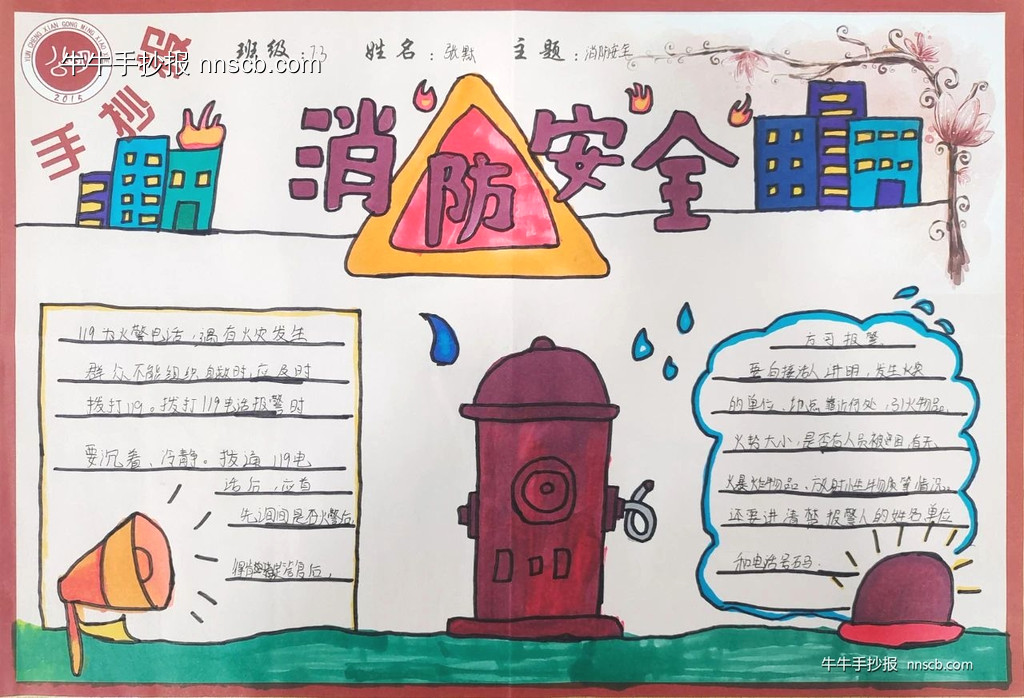 YUN CHENG XIAN GONG MING XIAO XUE
2015
牛牛手抄报 nnscb.com
手抄报
班级：73 姓名：张默 主题：消防安全
消防安全
119为火警电话，遇有火灾发生
群众不能组织自救时，应及时
拨打119。拨打119电话报警时
要沉着、冷静。拨通119电
话后，应首
先询问是否火警后，
得肯定答复后，
方可报警
要向接话人讲明，发生火灾
的单位、地点、靠近何处，引火物品，
火势大小，是否有人员被困，有无
爆炸物品、放射性物质等情况。
还要讲清楚报警人的姓名单位
和电话号码．
牛牛手抄报 nnscb.com